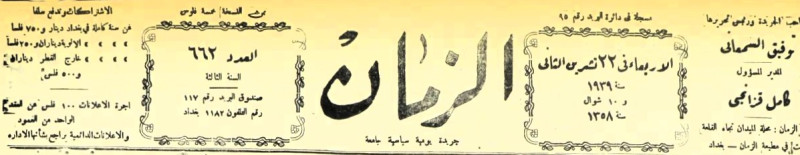 صاحب الجريدة ورئيس تحريرها
توفيق السمعاني
المدير المسؤول
كامل قزانجي
الزمان: محلة الميدان تجاه القلعة
في مطبعة الزمان — بغداد
مسجلة في دائرة البريد رقم ٩٥
الاربعاء في ٢٢ تشرين الثاني
سنة ١٩٣٩
و ١٠ شوال
سنة ١٣٥٨
الزمان
جريدة يومية سياسية جامعة
ثمن النسخة خمسة فلوس
العدد ٦٦٢
السنة الثالثة
صندوق البريد رقم ١١٧
رقم التلفون ١١٨٢ بغداد
الاشتراكات وتدفع سلفا
عن سنة كاملة في بغداد دينار و ٧٥٠ فلساً
» » الالوية ديناران و ٢٥٠ فلساً
» » خارج القطر ديناران
و ٥٠٠ فلس
اجرة الاعلانات ١٠٠ فلس عن العقدة
الواحد من العمود
والاعلانات الدائمية راجع بشأنها الادارة